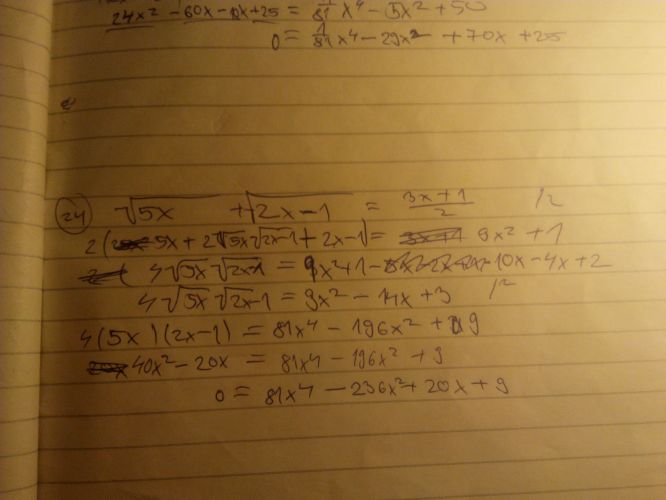 24x² - 60x - 10x + 25 = 1/81 x⁴ - 5x² + 50
0 = 1/81 x⁴ - 29x² + 70x + 25
24) √5x + √2x-1 = 3x+1/2 /²
2(5x + 2√5x √2x-1 + 2x-1) = 9x² + 1
4√5x √2x-1 = 9x² + 1 - 10x - 4x + 2
4√5x √2x-1 = 9x² - 14x + 3 /²
4(5x)(2x-1) = 81x⁴ - 196x² + 9
40x² - 20x = 81x⁴ - 196x² + 9
0 = 81x⁴ - 236x² + 20x + 9